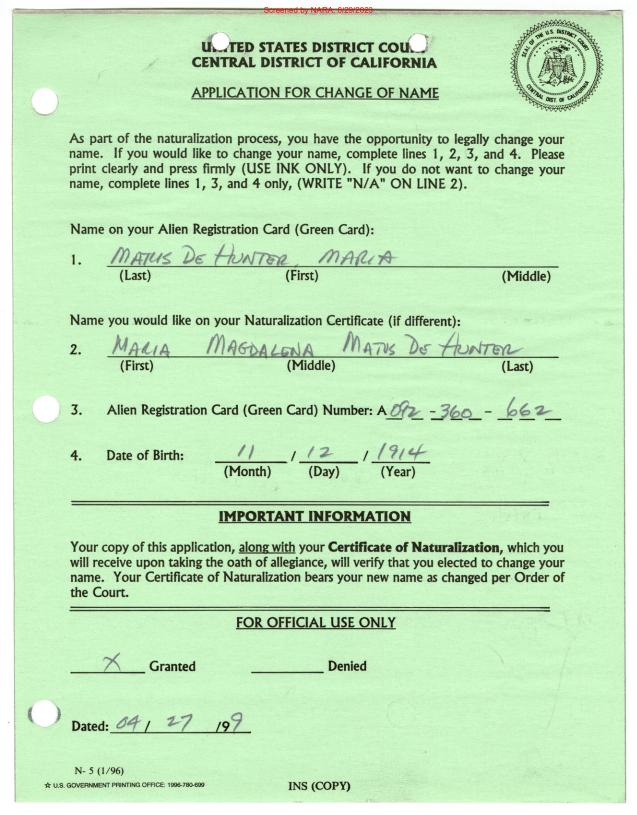 Screened by NARA, 6/29/2023
UNITED STATES DISTRICT COU
CENTRAL DISTRICT OF CALIFORNIA
SEAL OF THE U.S. DISTRICT COURT
CENTRAL DIST. OF CALIFORNIA
APPLICATION FOR CHANGE OF NAME
As part of the naturalization process, you have the opportunity to legally change your
name. If you would like to change your name, complete lines 1, 2, 3, and 4. Please
print clearly and press firmly (USE INK ONLY). If you do not want to change your
name, complete lines 1, 3, and 4 only, (WRITE "N/A" ON LINE 2).
Name on your Alien Registration Card (Green Card):
1. MATUS DE HUNTER, MARIA
(Last) (First) (Middle)
Name you would like on your Naturalization Certificate (if different):
2. MARIA MAGDALENA MATUS DE HUNTER
(First) (Middle) (Last)
3. Alien Registration Card (Green Card) Number: A 092 - 360 - 662
4. Date of Birth: 11 / 12 / 1914
(Month) (Day) (Year)
IMPORTANT INFORMATION
Your copy of this application, along with your Certificate of Naturalization, which you
will receive upon taking the oath of allegiance, will verify that you elected to change your
name. Your Certificate of Naturalization bears your new name as changed per Order of
the Court.
FOR OFFICIAL USE ONLY
X Granted Denied
Dated: 04 / 27 /99
N- 5 (1/96)
☆ U.S. GOVERNMENT PRINTING OFFICE: 1996-780-699
INS (COPY)